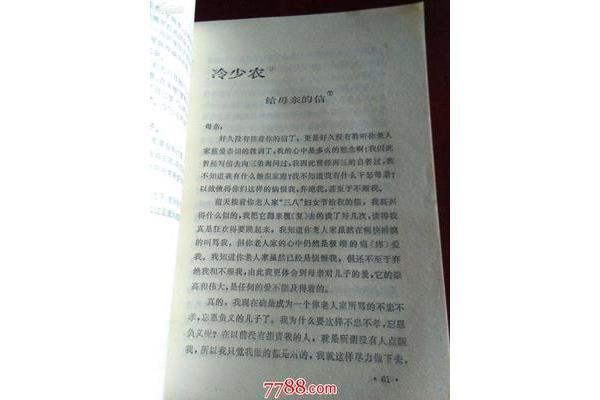 冷少农
给母亲的信①
母亲:
好久没有接着你的信了,更是好久没有聆听你老人
家慈爱亲切的教训了,我的心中是多么的想念啊!我因此
曾经写信去向三弟询问过,我因此曾经再三的自省过,我
不知道我有什么触怒家庭?我不知道我有什么干怒母亲?
以致使得你们这样的恼恨我,弃绝我,甚至于不理我。
前天接着你老人家“三八”妇女节给我的信,我高兴
得什么似的,我把它翻来覆(复)去的读了好几次,读得我
真是狂欢得要跳起来,我知道你老人家虽然在痛快淋漓
的叫骂我,但你老人家的心中仍然是极端的痛(疼)爱
我。我知道你老人家虽然已经是恼恨我,但还不至于弃
绝我和不理我,由此我更体会到母亲对儿子的爱,它的崇
高和伟大,是任何的爱不能及得着的。
真的,我现在确是成为一个你老人家所骂的不忠不
孝,忘恩负义的儿子了。我为什么要这样不忠不孝,忘恩
负义呢?在以前没有指责我的人,就是所谓没有人点醒
我,所以我只觉我做的都是对的,我就这样尽力做下去,
·61·
7788.com